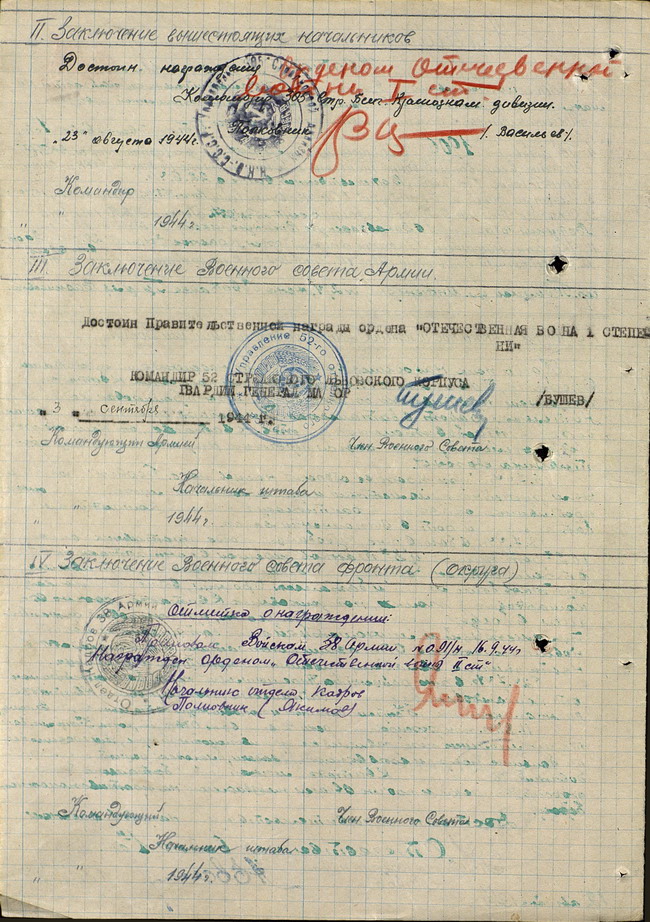 II. Заключение вышестоящих начальников
Достоин награждения Орденом Отечественной
войны I ст
Командир 305 Стр. Бел. Краснознам дивизии.
Полковник /Васильев/.
"23" августа 1944г.
Командир
" " 1944г.
III. Заключение Военного совета Армии.
Достоин Правительственной награды ордена "ОТЕЧЕСТВЕННАЯ ВОЙНА 1 СТЕПЕ
НИ"
КОМАНДИР 52 СТРЕЛКОВОГО ЛЬВОВСКОГО КОРПУСА
ГВАРДИИ ГЕНЕРАЛ МАЙОР /БУШЕВ/
" 3 " сентября 1944 г.
Командующий Армией Член Военного Совета
Начальник штаба
" " 1944г.
IV. Заключение Военного совета фронта (Округа)
Отметка о награждении:
Войскам 38 Армии № 091/н 16.9.44г.
Награжден орденом "Отечественной война II ст"
Начальник отдела кадров
Полковник (Якимов)
Командующий Член Военного Совета
Начальник штаба
" " 1944г.